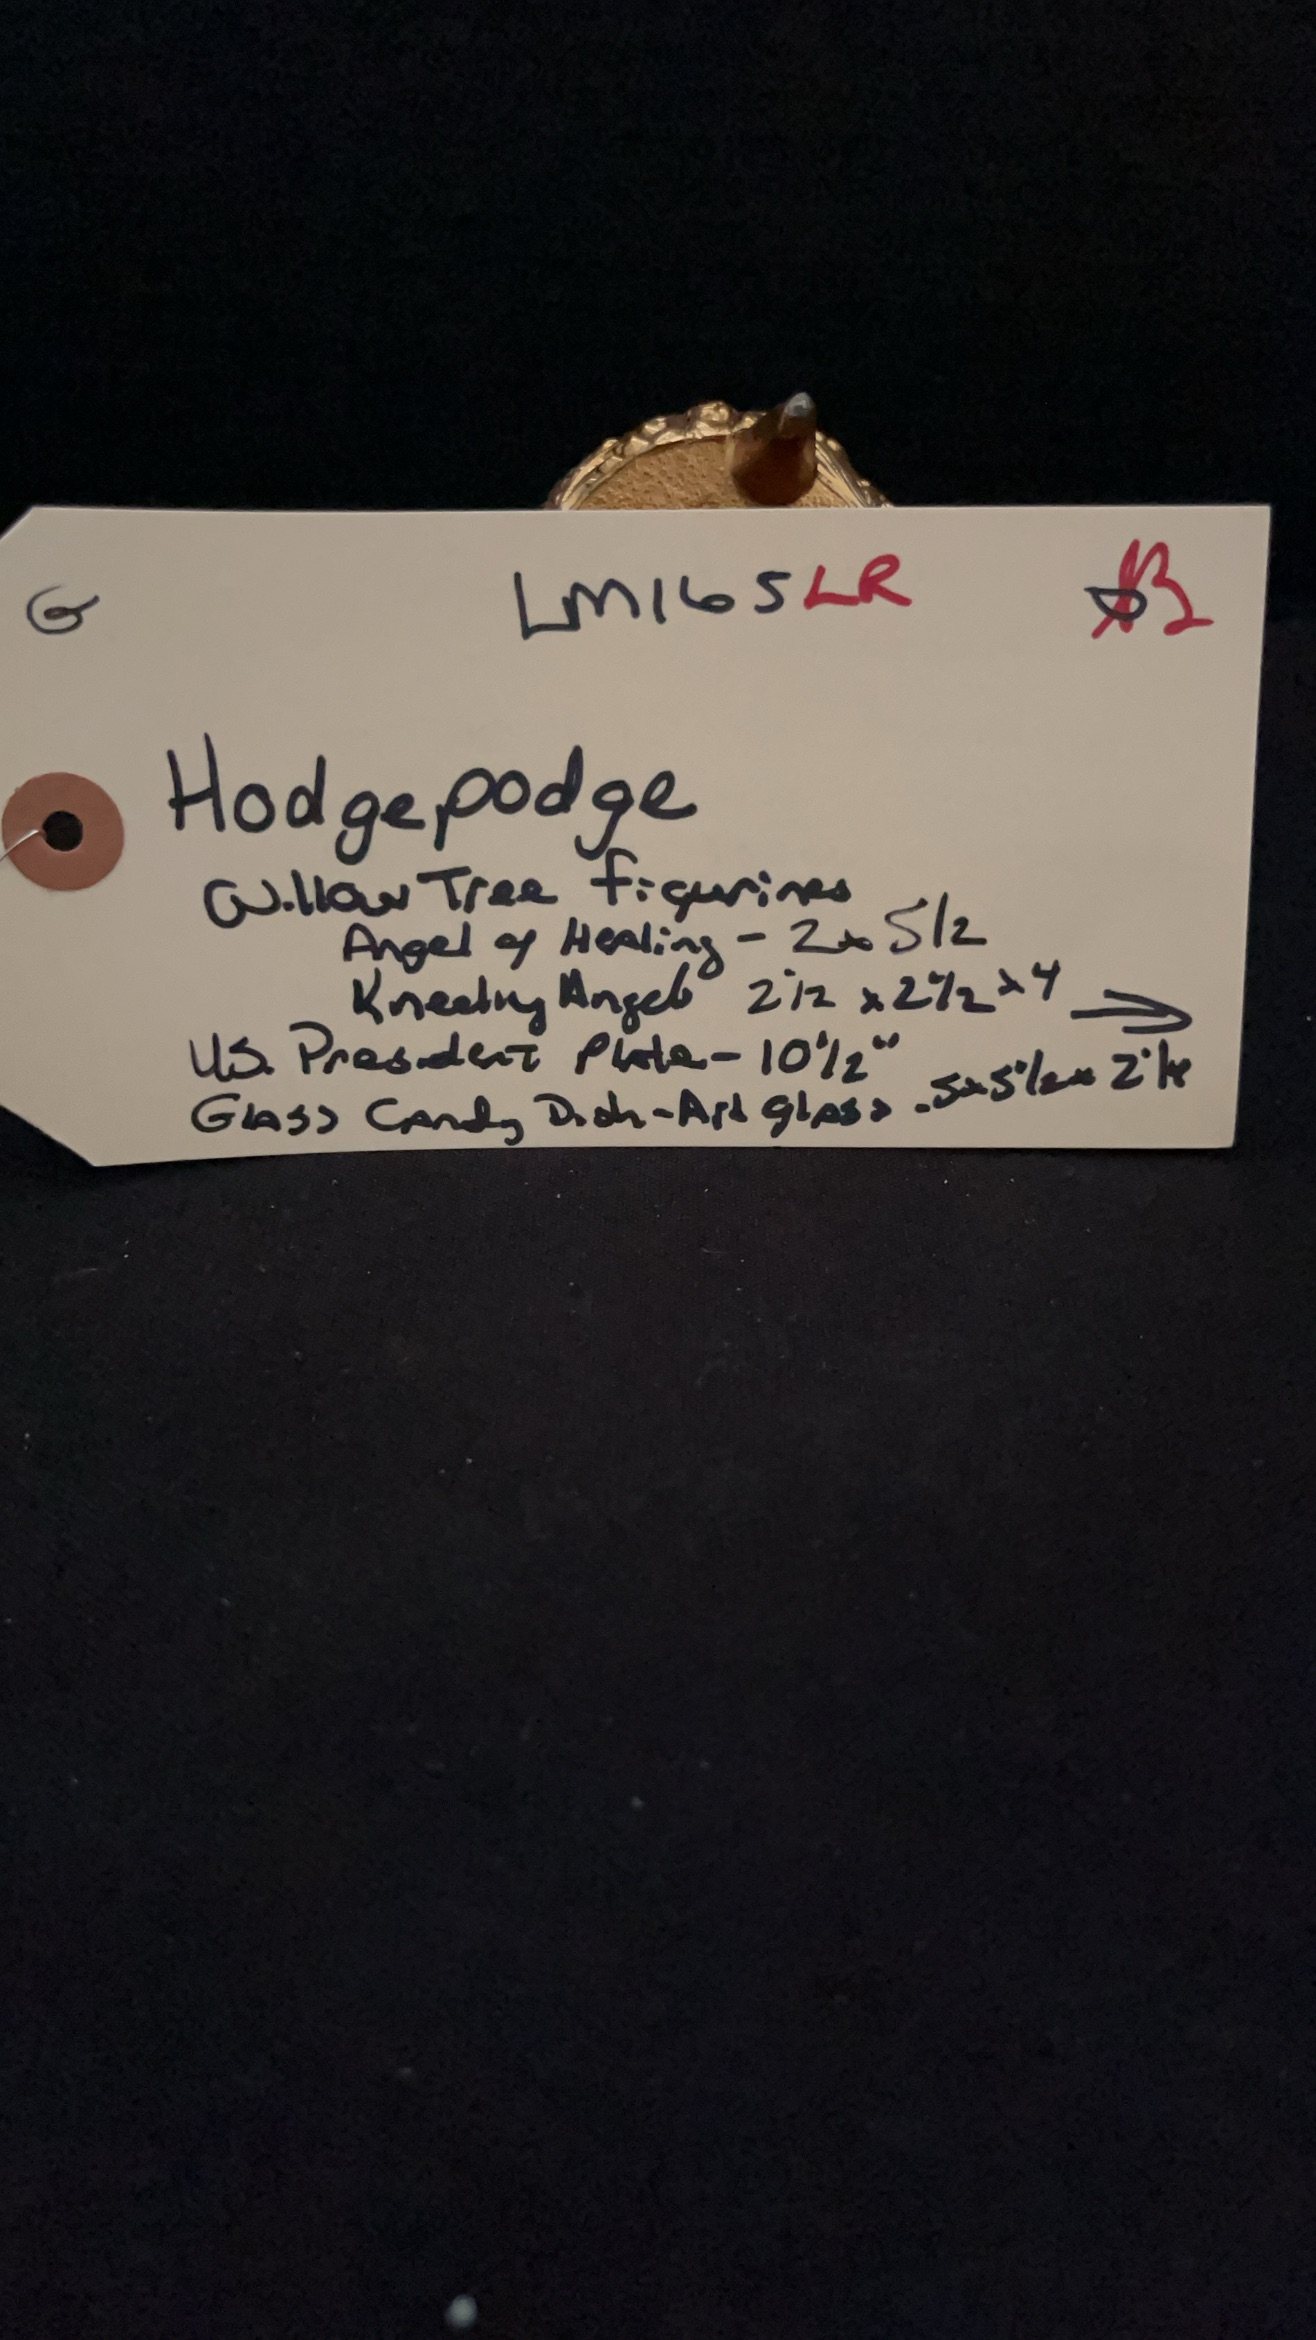 G LM165LR
Hodgepodge
Willow Tree figurines
Angel of Healing - 2x 5 1/2
Kneeling Angel 2 1/2 x 2 1/2 x 4
U.S. President Plate - 10 1/2"
Glass Candy Dish - Art glass